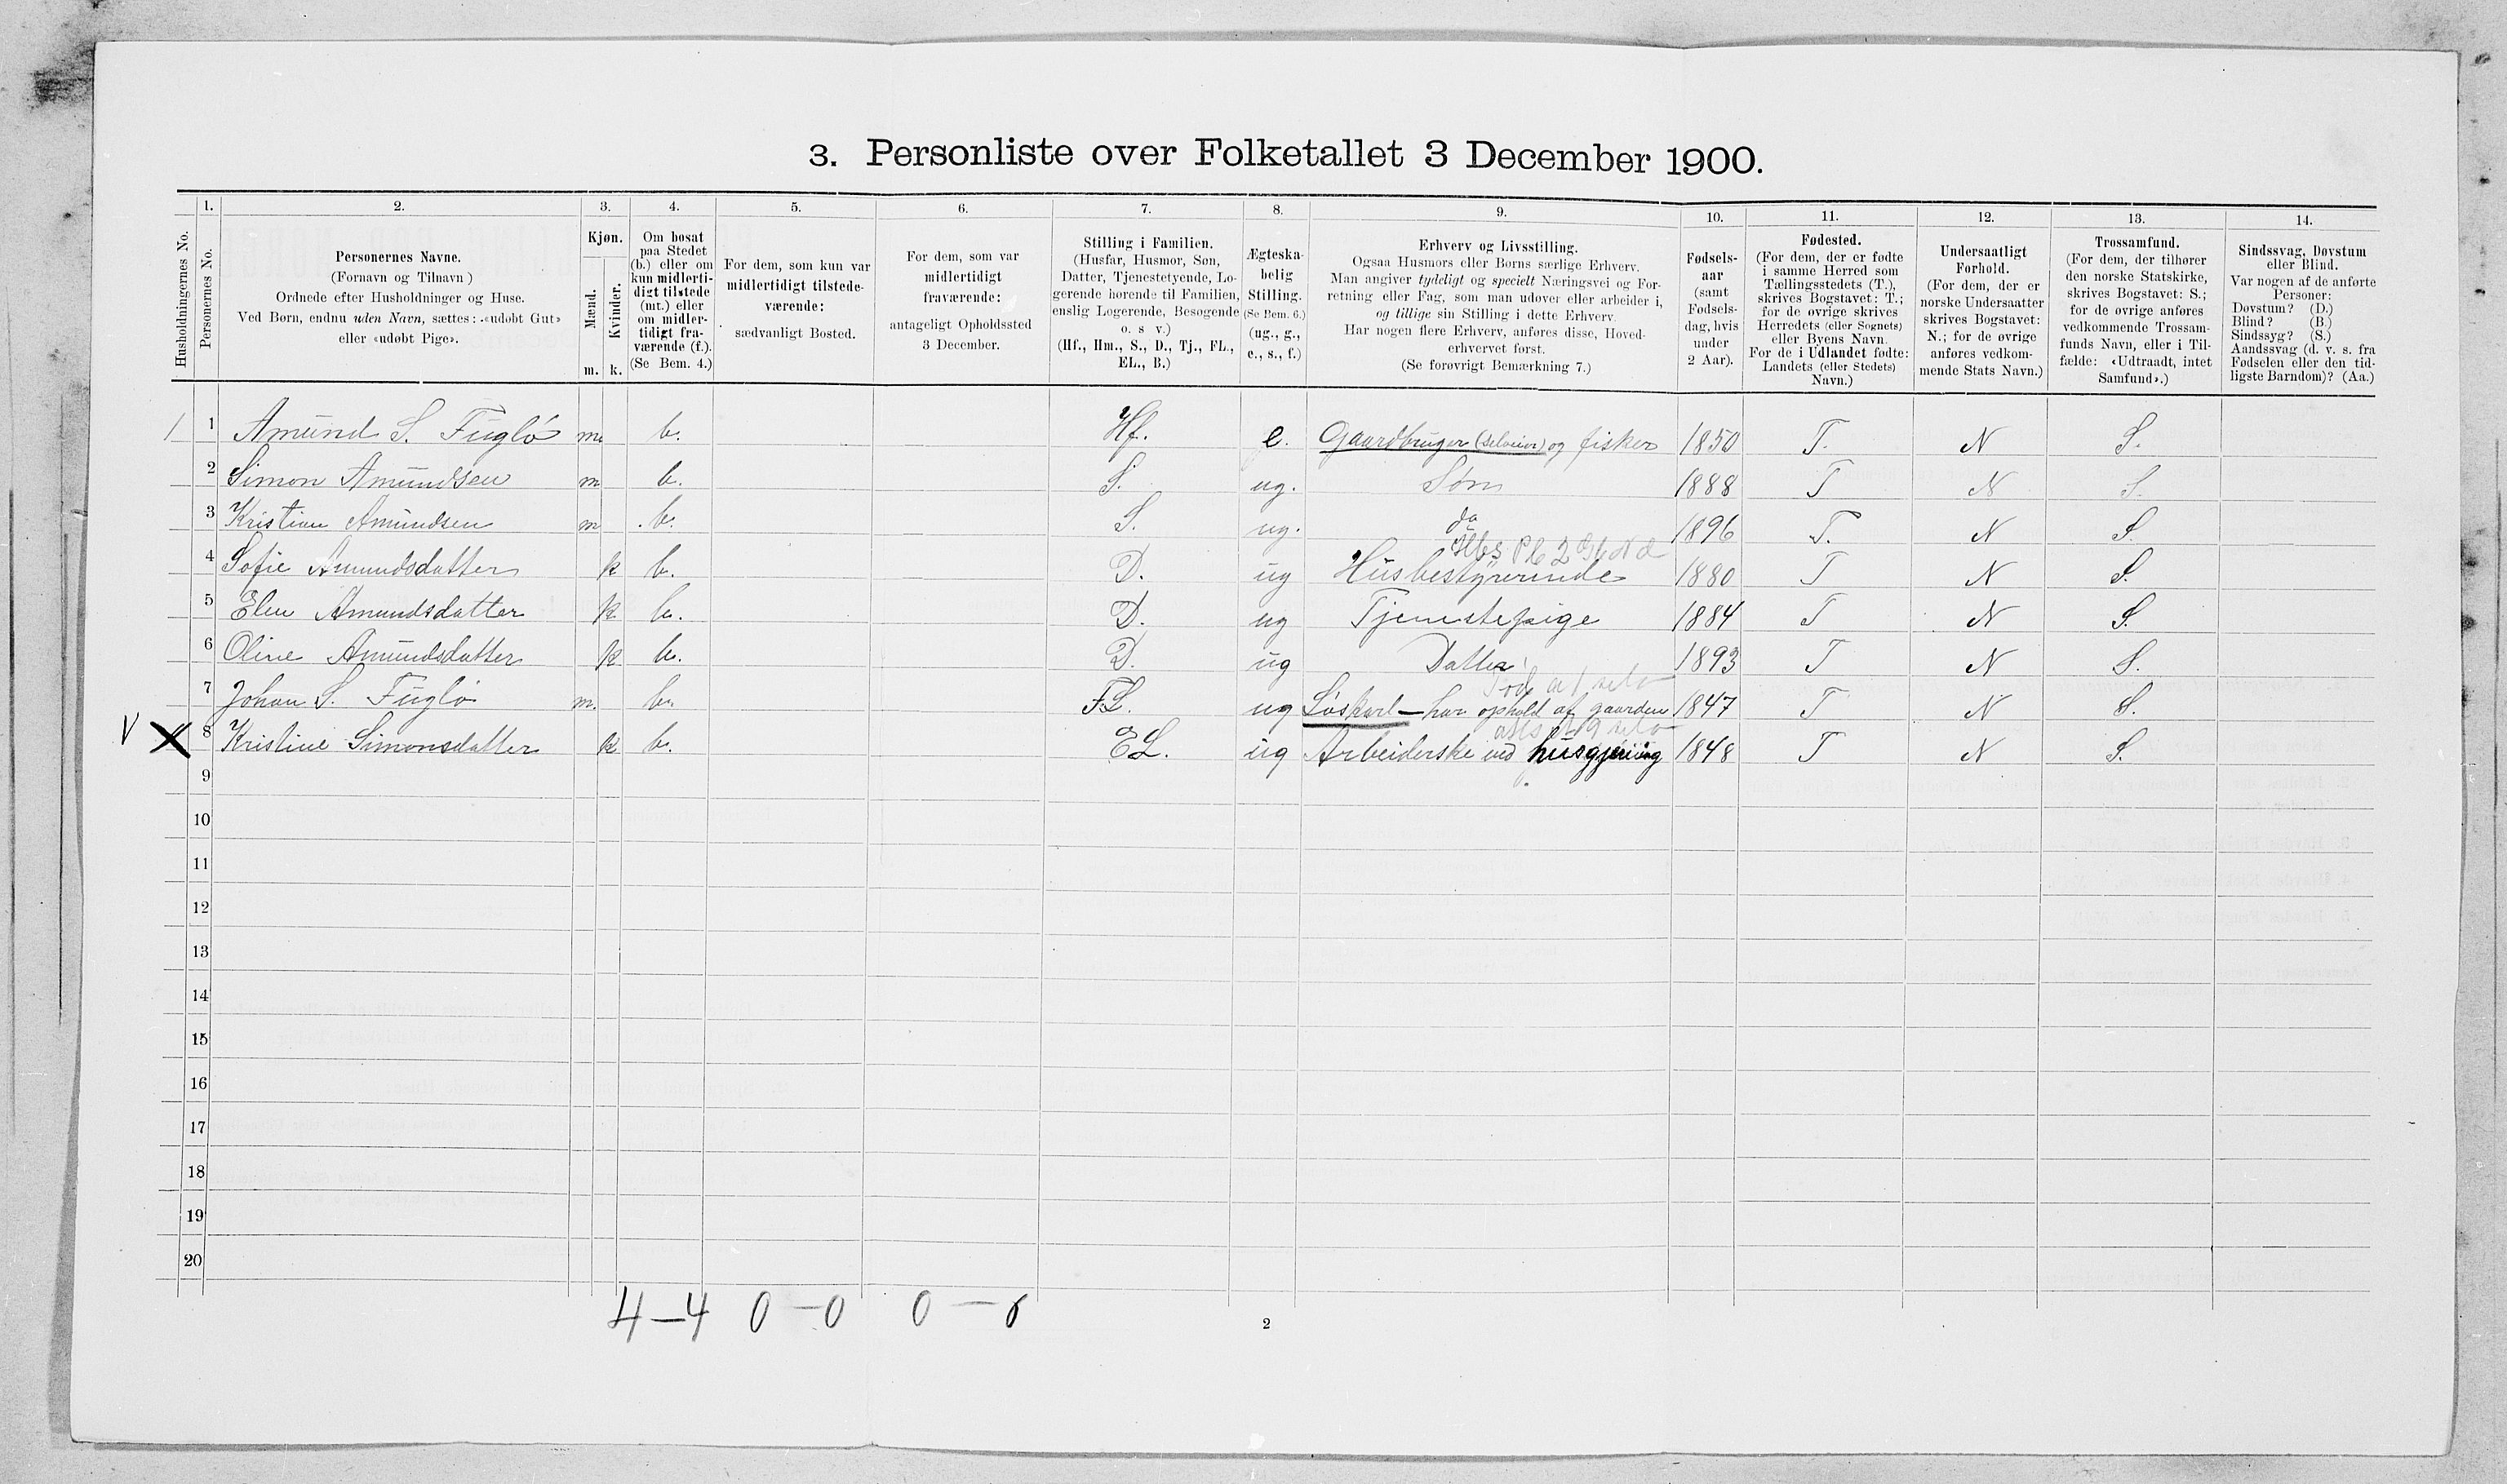 3. Personliste over Folketallet 3 December 1900.
1. 2. 3. 4. 5. 6. 7. 8. 9. 10. 11. 12. 13. 14.
Husholdningernes No.
Personernes No.
Personernes Navne.
(Fornavn og Tilnavn )
Ordnede efter Husholdninger og Huse.
Ved Børn, endnu uden Navn, sættes: «udøbt Gut»
eller «udøbt Pige».
Kjøn.
Mænd.
Kvinder.
m. k.
Om bosat
paa Stedet
(b.) eller om
kun midlerti-
digt tilstede
(mt.) eller
om midler-
tidigt fra-
værende (f.).
(Se Bem. 4.)
For dem, som kun var
midlertidigt tilstede-
værende:
sædvanligt Bosted.
For dem, som var
midlertidigt
fraværende:
antageligt Opholdssted
3 December.
Stilling i Familien.
(Husfar, Husmor, Søn,
Datter, Tjenestetyende, Lo-
gerende hørende til Familien,
enslig Logerende, Besøgende
o. s v.)
(Hf., Hm., S., D., Tj., FL.,
EL., B.)
Ægteska-
belig
Stilling.
(Se Bem. 6.)
(ug., g.,
e., s., f.)
Erhverv og Livsstilling.
Ogsaa Husmors eller Børns særlige Erhverv.
Man angiver tydeligt og specielt Næringsvei og For-
retning eller Fag, som man udøver eller arbeider i,
og tillige sin Stilling i dette Erhverv.
Har nogen flere Erhverv, anføres disse, Hoved-
erhvervet først.
(Se forøvrigt Bemærkning 7.)
Fødsels-
aar
(samt
Fødsels-
dag, hvis
under
2 Aar).
Fødested.
(For dem, der er fødte
i samme Herred som
Tællingsstedets (T.),
skrives Bogstavet: T.;
for de øvrige skrives
Herredets (eller Sognets)
eller Byens Navn.
For de i Udlandet fødte:
Landets (eller Stedets)
Navn.)
Undersaatligt
Forhold.
(For dem, der er
norske Undersaatter
skrives Bogstavet:
N.; for de øvrige
anføres vedkom-
mende Stats Navn.)
Trossamfund.
(For dem, der tilhører
den norske Statskirke,
skrives Bogstavet: S.;
for de øvrige anføres
vedkommende Trossam-
funds Navn, eller i Til-
fælde: «Udtraadt, intet
Samfund».)
Sindssvag, Døvstum
eller Blind.
Var nogen af de anførte
Personer:
Døvstum? (D.)
Blind? (B.)
Sindssyg? (S.)
Aandssvag (d. v. s. fra
Fødselen eller den tid-
ligste Barndom)? (Aa.)
1 1 Amund S. Fuglø m. b. Hf. e. Gaardbruger (selveier) og fisker 1850 T. N S.
2 Simon Amundsen m b. S. ug. Søn 1888 T N S.
3 Kristian Amundsen m b. S. ug. do 1896 T. N S.
4 Sofie Amundsdatter k b. D. ug Husbestyrerinde 1880 T N S.
5 Elen Amundsdatter k b. D. ug Tjenestepige 1884 T N S.
6 Oline Amundsdatter k b. D. ug Datter 1893 T N S.
7 Johan S. Fuglø m. b. FL. ug Løskarl – har ophold af gaarden 1847 T N S.
V X 8 Kristine Simonsdatter k b. EL. ug Arbeiderske ved husgjerning 1848 T N S.
9
10
11
12
13
14
15
16
17
18
19
20
4–4 0–0 0–0
2